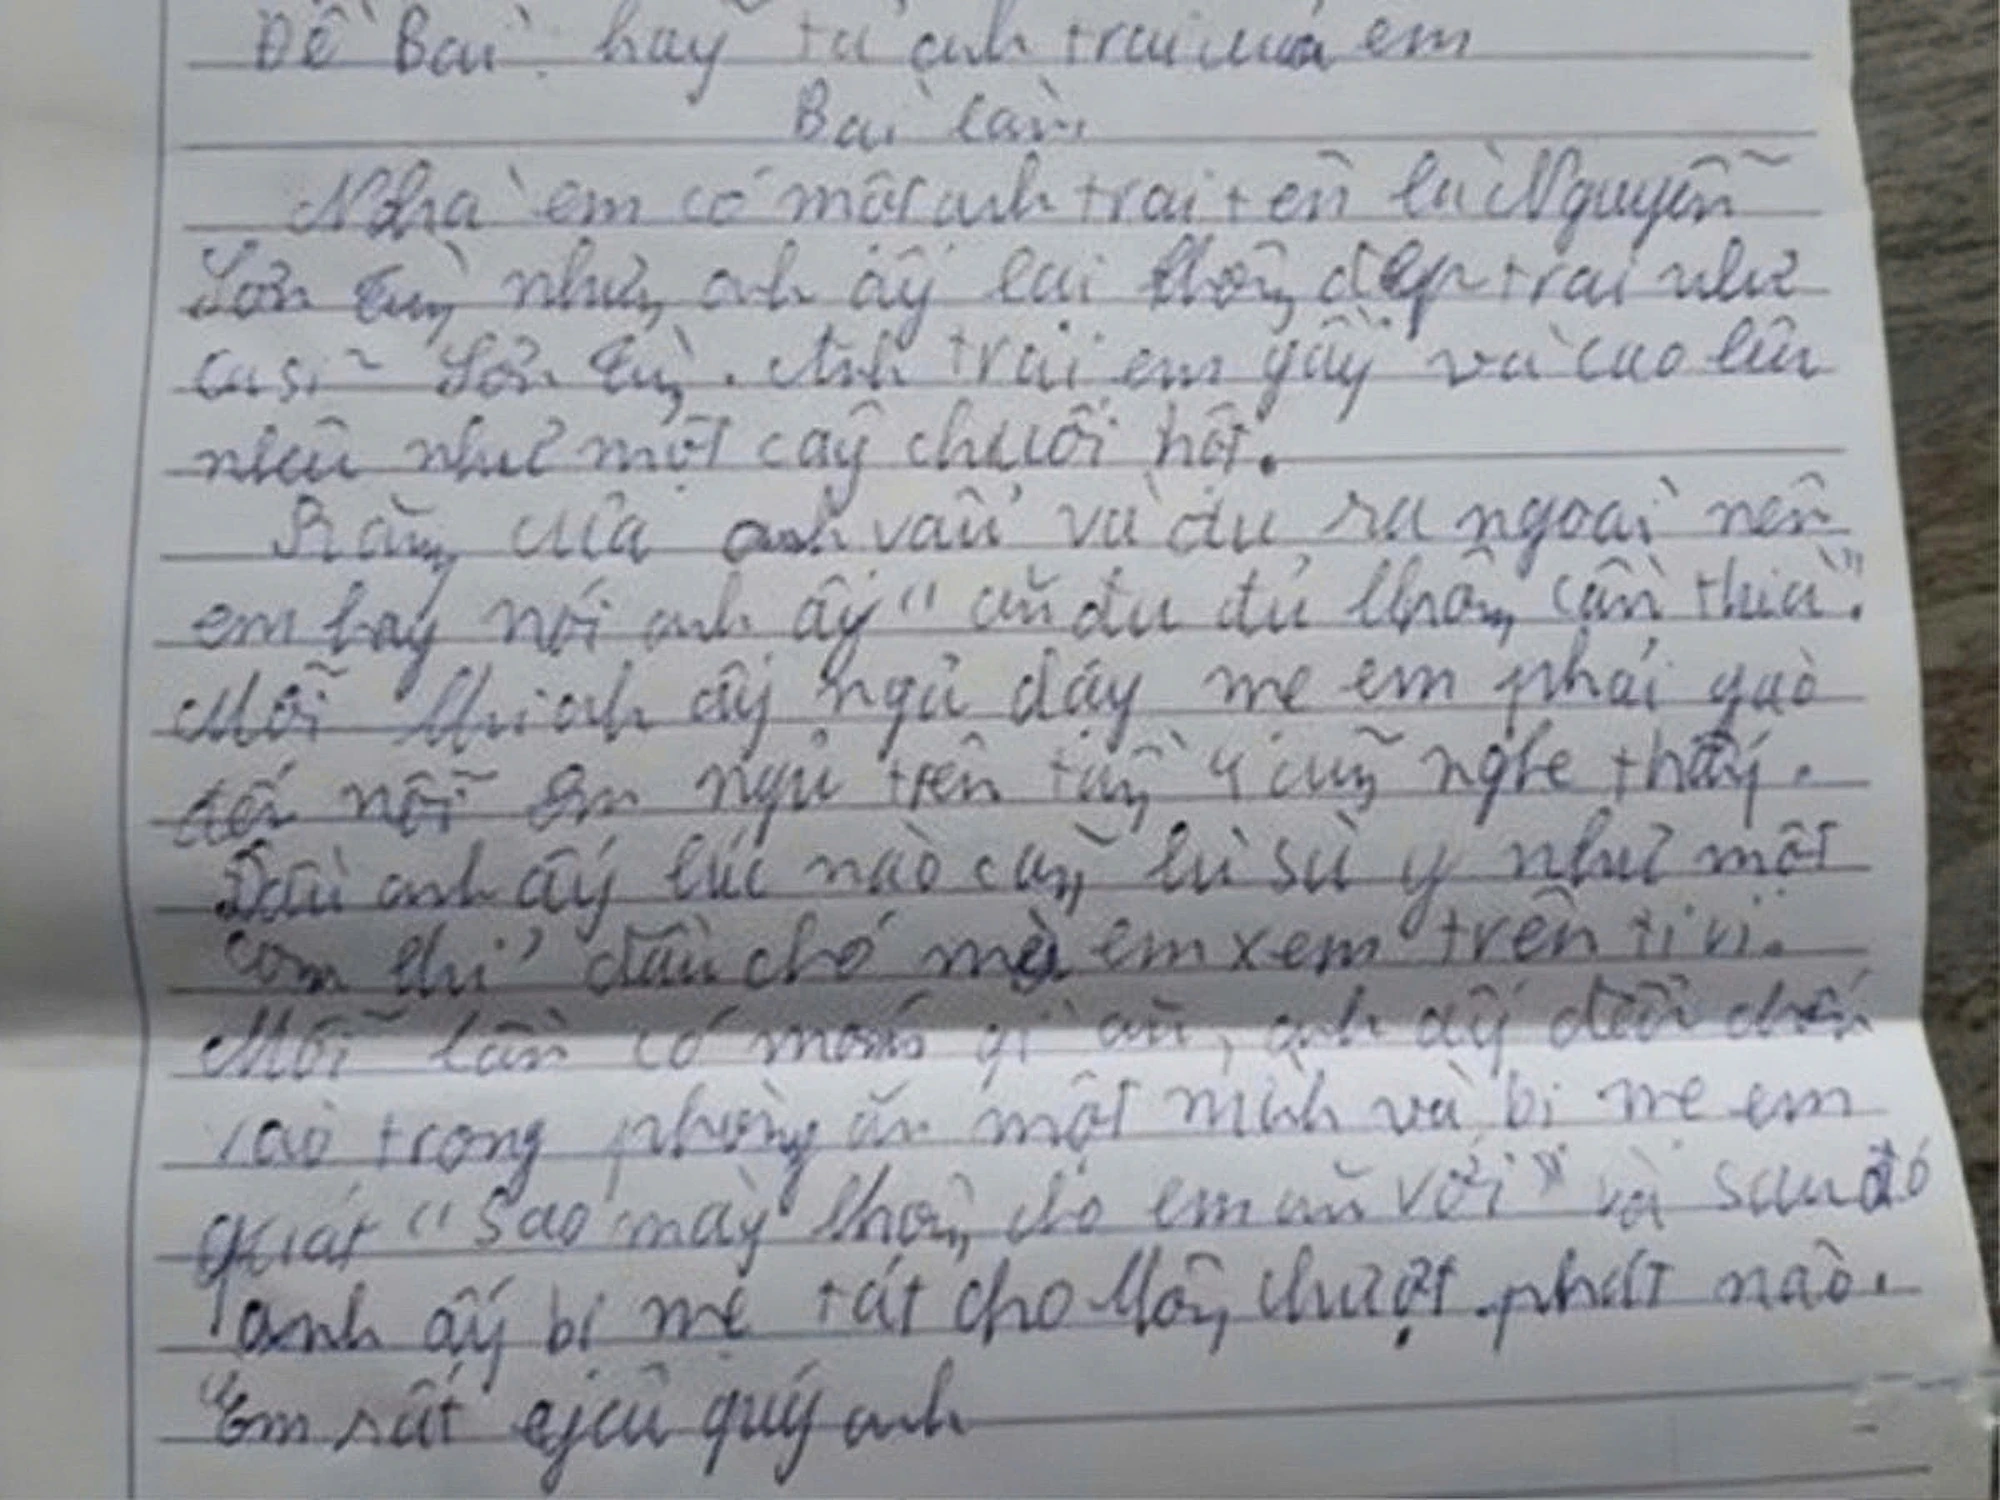 Đề Bài: hãy tả anh trai của em
Bài làm
Nhà em có một anh trai tên là Nguyễn
Sơn Tùng nhưng anh ấy lại không đẹp trai như
ca sĩ Sơn Tùng. Anh trai em gầy và cao lêu
nhêu như một cây chuối hột.
Răng của anh vẩu và đưa ra ngoài nên
em hay nói anh ấy "ăn đu đủ không cần thìa".
Mỗi khi anh ấy ngủ dậy mẹ em phải gào
đến nỗi em ngủ trên tầng 4 cũng nghe thấy.
Đầu anh ấy lúc nào cũng bù xù y như một
con khỉ đầu chó mà em xem trên ti vi.
Mỗi lần có món gì ăn, anh ấy đều
vào trong phòng ăn một mình và bị mẹ em
quát "Sao mày không cho em ăn với" và sau đó
anh ấy bị mẹ tát cho không chượt phát nào.
Em rất quý anh